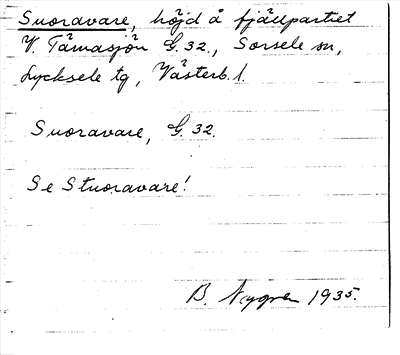 Suoravare, höjd å fjällpartiet
V. Tåmasjön G. 32., Sorsele sn,
Lycksele tg, Västerb. l.
Suoravare, G. 32.
Se Stuoravare!
B. Nygren 1935.